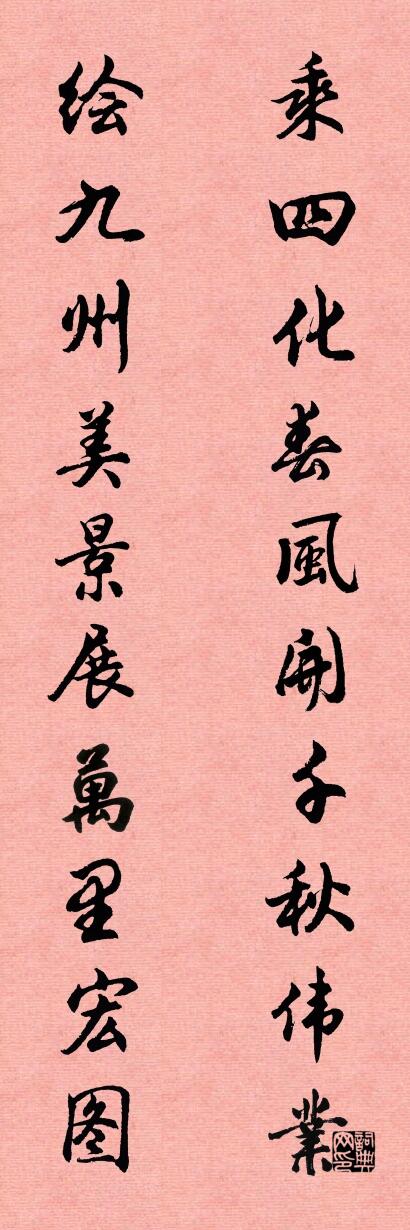 乘四化春風開千秋伟業
绘九州美景展萬里宏图